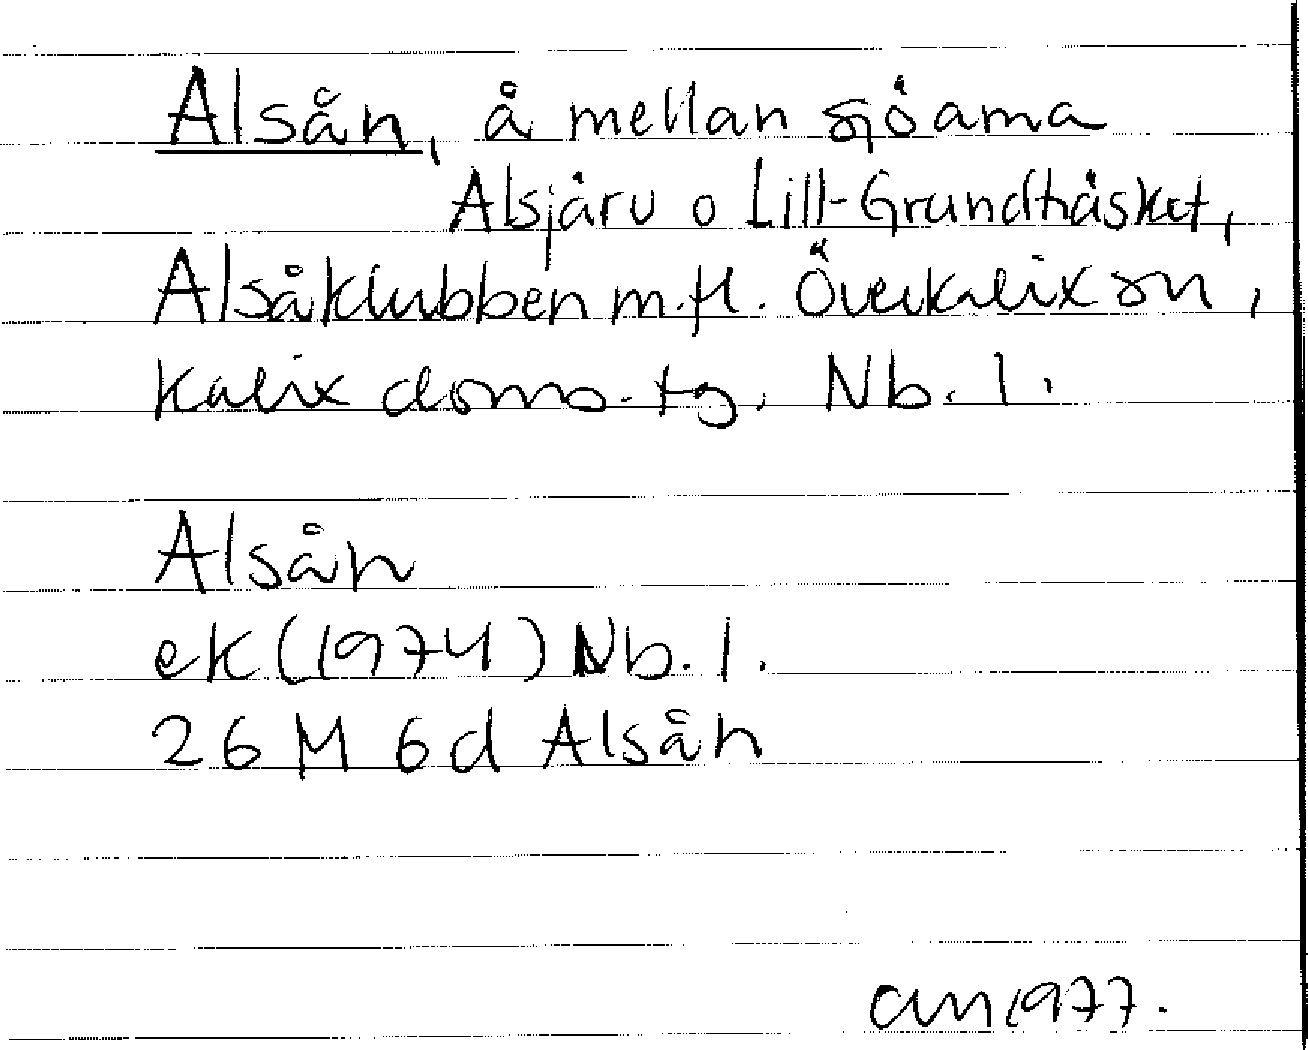 Alsån, å mellan sjöarna
Alsjärv o Lill-Grundträsket,
Alsåklubben m.fl. Överkalix sn,
Kalix doms. tg. Nb. l.
Alsån
ek (1974) Nb. l.
26 M 6d Alsån
am 1977.